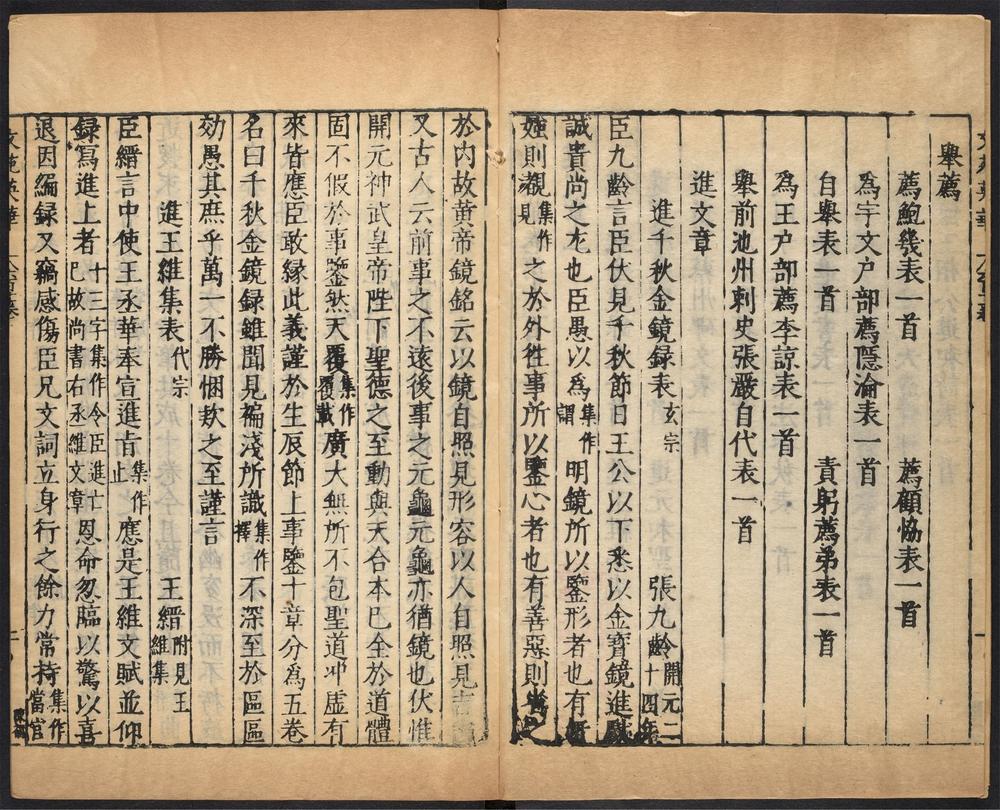 舉薦
薦鮑幾表一首 薦顧協表一首
爲宇文户部薦隱淪表一首
自舉表一首 責躬薦弟表一首
爲王户部薦李諒表一首
舉前池州刺史張嚴自代表一首
進文章
進千秋金鏡録表 玄宗 張九齡 開元二十四年
臣九齡言臣伏見千秋節日王公以下悉以金寶鏡進獻
誠貴尚之尤也臣愚以爲 集作謂 明鏡所以鑒形者也有妍
媸則觀 集作見 之於外往事所以鑒心者也有善惡則省之
於内故黄帝鏡銘云以鏡自照見形容以人自照見吉凶
又古人云前事之不遠後事之元龜元龜亦猶鏡也伏惟
開元神武皇帝陛下聖德之至動與天合本已全於道體
固不假於事鑒然天覆 集作覆載 廣大無所不包聖道冲虚有
來皆應臣敢緣此義謹於生辰節上事鑒十章分爲五卷
名曰千秋金鏡録雖聞見褊淺所識 集作擇 不深至於區區
効愚其庶乎萬一不勝悃欵之至謹言
進王維集表 代宗 王縉 附見王維集
臣縉言中使王丞華奉宣進旨 集作止 應是王維文賦並仰
録寫進上者 十三字集作令臣進亡已故尚書右丞維文章 恩命忽臨以驚以喜
退因編録又竊感傷臣兄文詞立身行之餘力常持 集作當官